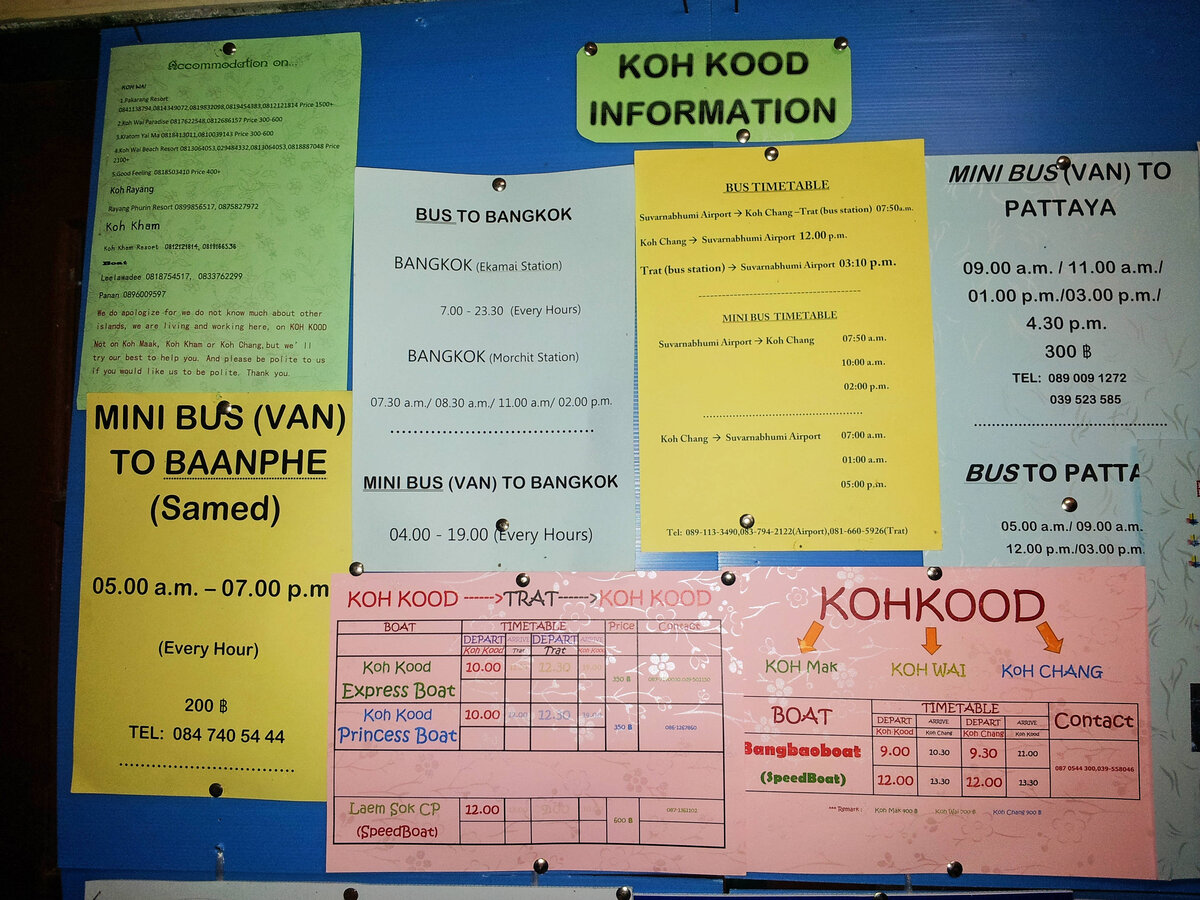 KOH KOOD
INFORMATION
Accommodation on...
KOH WAI
1.Pakarang Resort
0841138794,0814349072,0819832098,0819454383,0812121814 Price 1500+
2.Koh Wai Paradise 0817622548,0812686157 Price 300-600
3.Kratom Yai Ma 0818413011,0810039143 Price 300-600
4.Koh Wai Beach Resort 0813064053,029484332,0813064053,0818887048 Price
2100+
5.Good Feeling 0818503410 Price 400+
Koh Rayang
Rayang Phurin Resort 0899856517, 0875827972
Koh Kham
Koh Kham Resort 0812121814, 0819166536
Boat
Leelawadee 0818754517, 0833762299
Panan 0896009597
We do apologize for we do not know much about other
islands, we are living and working here, on KOH KOOD
Not on Koh Maak, Koh Kham or Koh Chang,but we'll
try our best to help you. And please be polite to us
If you would like us to be polite. Thank you.
MINI BUS (VAN)
TO BAANPHE
(Samed)
05.00 a.m. – 07.00 p.m
(Every Hour)
200 ฿
TEL: 084 740 54 44
BUS TO BANGKOK
BANGKOK (Ekamai Station)
7.00 - 23.30 (Every Hours)
BANGKOK (Morchit Station)
07.30 a.m./ 08.30 a.m./ 11.00 a.m/ 02.00 p.m.
MINI BUS (VAN) TO BANGKOK
04.00 - 19.00 (Every Hours)
BUS TIMETABLE
Suvarnabhumi Airport → Koh Chang –Trat (bus station) 07:50a.m.
Koh Chang → Suvarnabhumi Airport 12.00 p.m.
Trat (bus station) → Suvarnabhumi Airport 03:10 p.m.
MINI BUS TIMETABLE
Suvarnabhumi Airport → Koh Chang 07:50 a.m.
10:00 a.m.
02:00 p.m.
Koh Chang → Suvarnabhumi Airport 07:00 a.m.
01:00 a.m.
05:00 p.m.
Tel: 089-113-3490,083-794-2122(Airport),081-660-5926(Trat)
MINI BUS (VAN) TO
PATTAYA
09.00 a.m. / 11.00 a.m./
01.00 p.m./03.00 p.m./
4.30 p.m.
300 ฿
TEL: 089 009 1272
039 523 585
BUS TO PATTA
05.00 a.m./ 09.00 a.m.
12.00 p.m./03.00 p.m.
KOH KOOD ------>TRAT----->KOH KOOD
BOAT TIMETABLE Price Contact
DEPART ARRIVE DEPART ARRIVE
Koh Kood Trat Trat Koh Kood
Koh Kood 10.00 12.30
Express Boat 350 ฿
Koh Kood 10.00 12.30
Princess Boat 350 ฿ 086-1267860
Laem Sok CP 12.00
(SpeedBoat) 600 ฿
KOHKOOD
KOH Mak KOH WAI KOH CHANG
BOAT TIMETABLE Contact
DEPART ARRIVE DEPART ARRIVE
Koh Kood Koh Chang Koh Chang Koh Kood
Bangbaoboat 9.00 10.30 9.30 11.00
087 0544 300,039-558046
(SpeedBoat) 12.00 13.30 12.00 13.30
*** Remark : Koh Mak 400 ฿ Koh Wai 700 ฿ Koh Chang 900 ฿